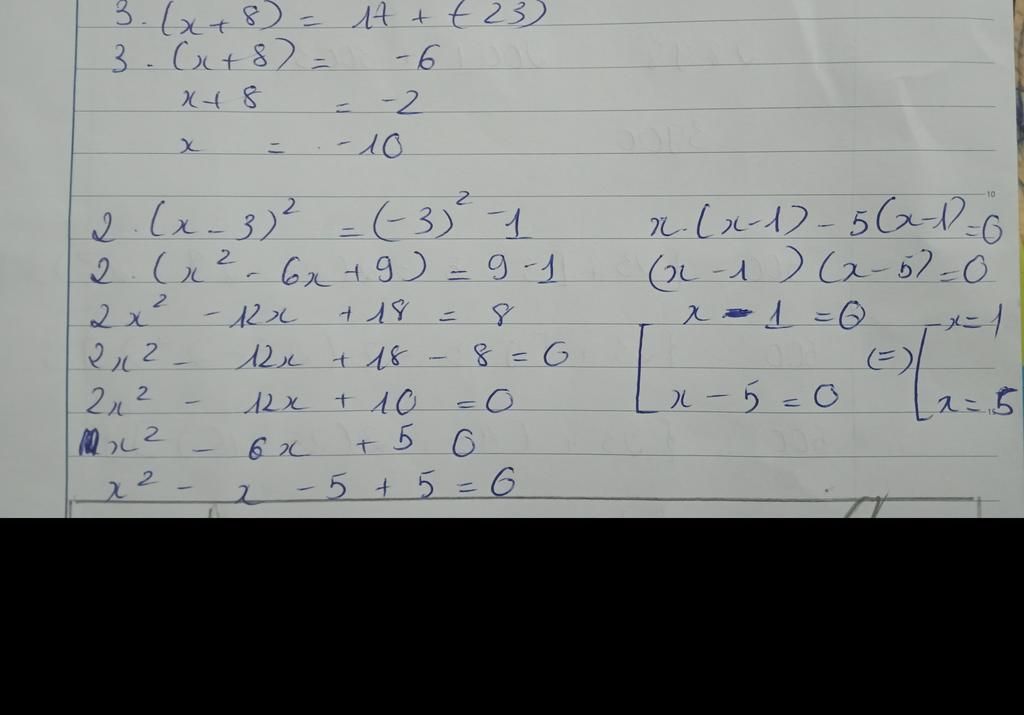 3. (x + 8) = 17 + (-23)
3. (x + 8) = -6
x + 8 = -2
x = -10
2. (x - 3)² = (-3)² - 1
2. (x² - 6x + 9) = 9 - 1
2x² - 12x + 18 = 8
2x² - 12x + 18 - 8 = 0
2x² - 12x + 10 = 0
x² - 6x + 5 0
x² - x - 5 + 5 = 0
x. (x - 1) - 5(x - 1) = 0
(x - 1) (x - 5) = 0
[ x - 1 = 0 (=) [ x = 1
x - 5 = 0 x = 5